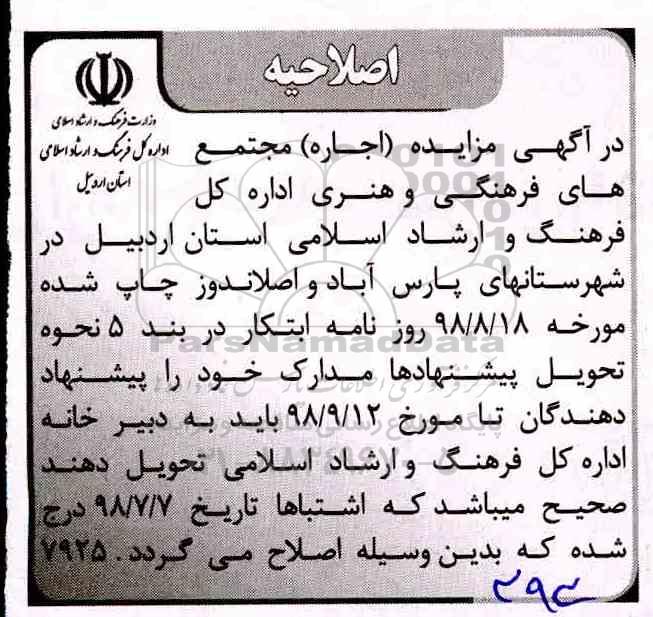 اصلاحیه
وزارت فرهنگ و ارشاد اسلامی
اداره کل فرهنگ و ارشاد اسلامی
استان اردبیل
در آگهی مزایده (اجاره) مجتمع
های فرهنگی و هنری اداره کل
فرهنگ و ارشاد اسلامی استان اردبیل در
شهرستانهای پارس آباد و اصلاندوز چاپ شده
مورخه ۹۸/۸/۱۸ روز نامه ابتکار در بند ۵ نحوه
تحویل پیشنهادها مدارک خود را پیشنهاد
دهندگان تبا مورخ ۹۸/۹/۱۲ باید به دبیر خانه
اداره کل فرهنگ و ارشاد اسلامی تحویل دهند
صحیح میباشد که اشتباها تاریخ ۹۸/۷/۷ درج
شده که بدین وسیله اصلاح می گردد. ۷۹۲۵
ParsNamadData